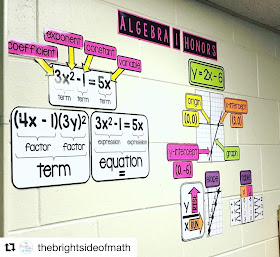 ALGEBRA 1 HONORS
exponent
coefficient
constant
variable
3x²-1=5x
term term term
y=2x-6
origin
(0,0)
x-intercept
(3,0)
(4x-1)(3y)²
factor factor
term
3x²-1=5x
expression expression
equation
=
y-intercept
(0,-6)
graph
slope
table
y
x
thebrightsideofmath